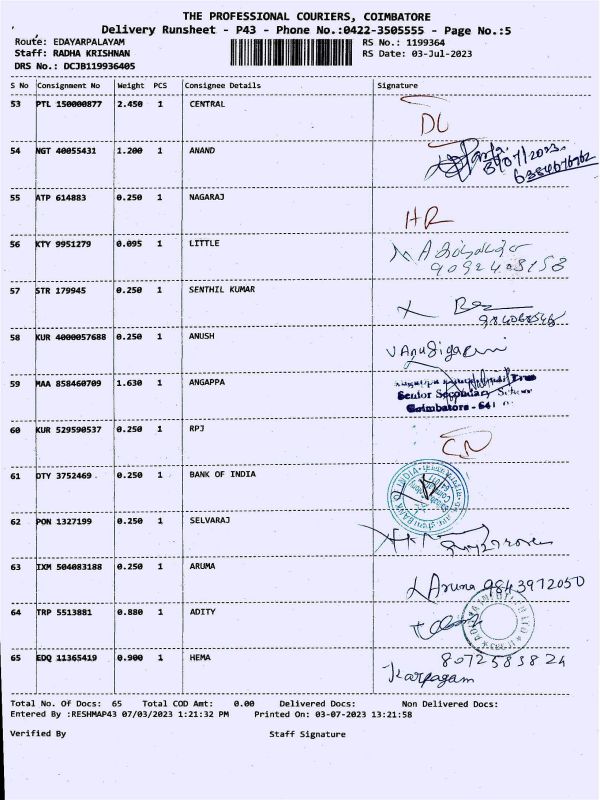 THE PROFESSIONAL COURIERS, COIMBATORE
Delivery Runsheet - P43 - Phone No.:0422-3505555 - Page No.:5
Route: EDAYARPALAYAM RS No.: 1199364
Staff: RADHA KRISHNAN RS Date: 03-Jul-2023
DRS No.: DCJB119936405
S No Consignment No Weight PCS Consignee Details Signature
53 PTL 150000877 2.450 1 CENTRAL
DL
54 NGT 40055431 1.200 1 ANAND
3/07/2023
6384676762
55 ATP 614883 0.250 1 NAGARAJ
HR
56 KTY 9951279 0.095 1 LITTLE
9092403158
57 STR 179945 0.250 1 SENTHIL KUMAR
58 KUR 4000057688 0.250 1 ANUSH
59 MAA 858460709 1.630 1 ANGAPPA
Senior Secondary School
Coimbatore - 641
60 KUR 529590537 0.250 1 RPJ
CN
61 DTY 3752469 0.250 1 BANK OF INDIA
BANK OF INDIA
62 PON 1327199 0.250 1 SELVARAJ
63 IXM 504083188 0.250 1 ARUMA
Aruna 9843972050
64 TRP 5513881 0.880 1 ADITY
65 EDQ 11365419 0.900 1 HEMA
8072583824
Karpagam
Total No. Of Docs: 65 Total COD Amt: 0.00 Delivered Docs: Non Delivered Docs:
Entered By :RESHMAP43 07/03/2023 1:21:32 PM Printed On: 03-07-2023 13:21:58
Verified By Staff Signature